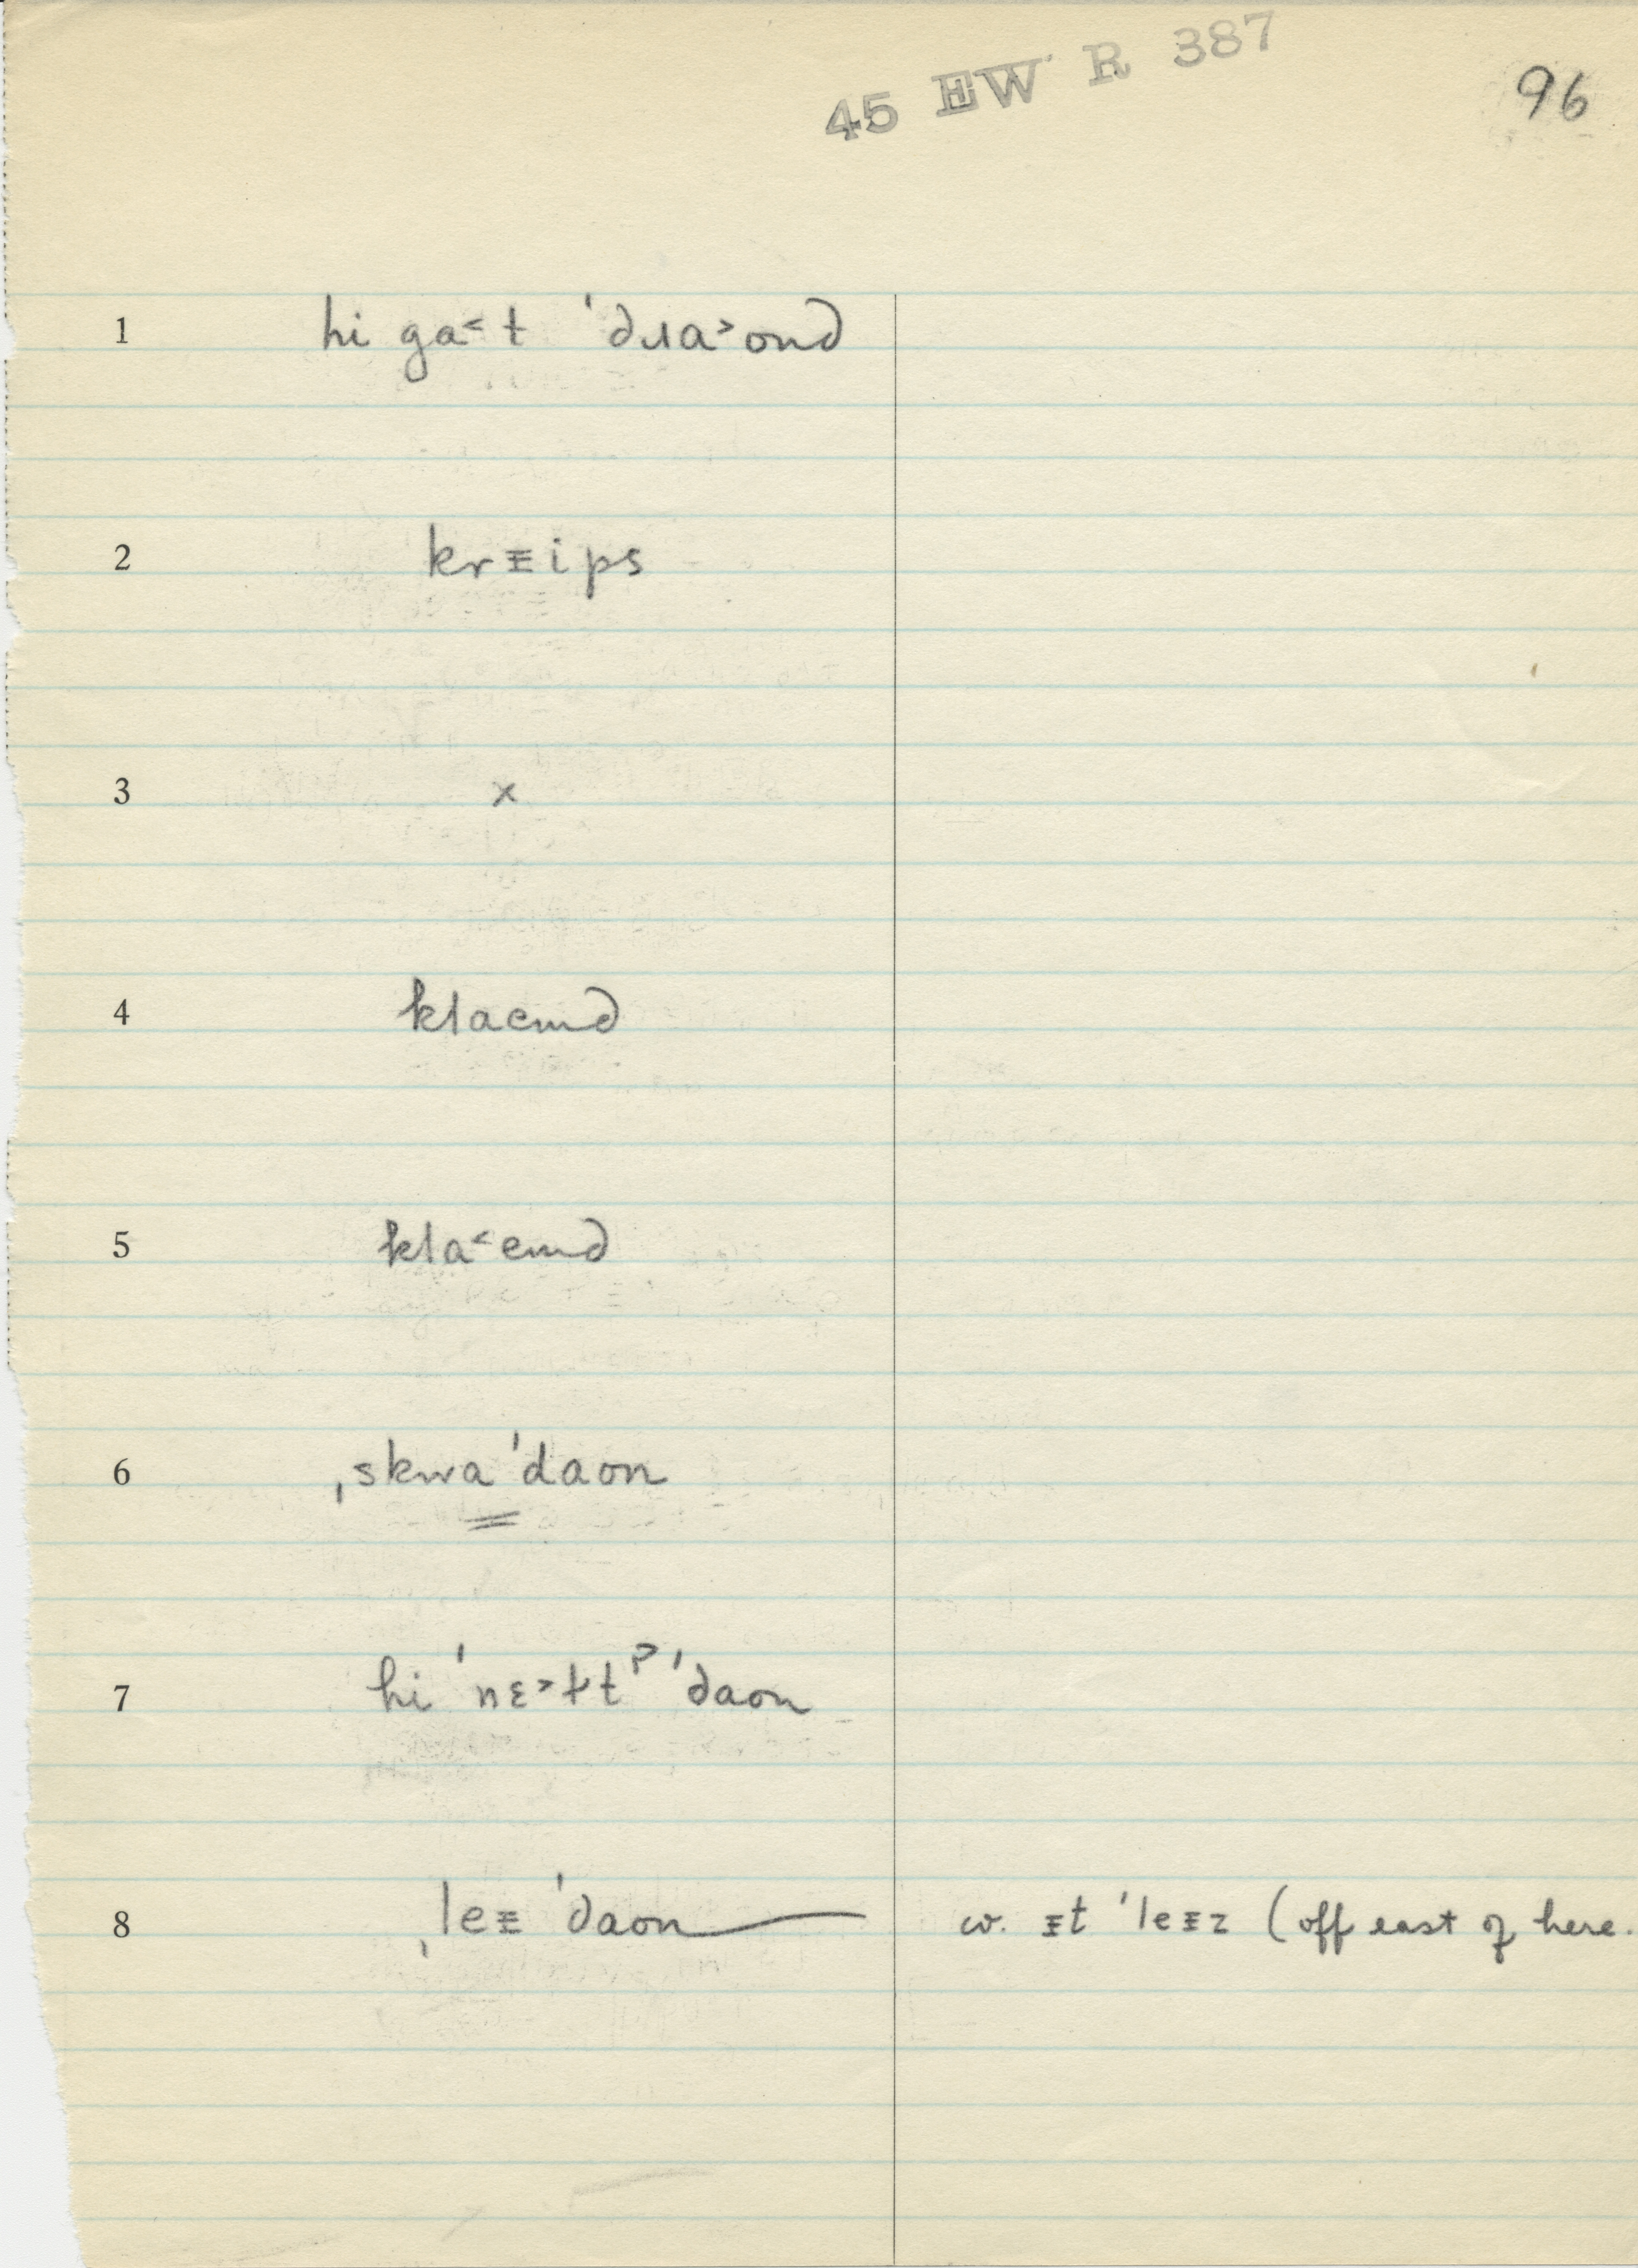 45 EW R 387
96
1 hi ga˂t ˈdɹa˃ond
2 krᵻips
3 x
4 klaemd
5 kla˂emd
6 ˌskwaˈdaon
7 hi ˈnɛ˃ɫtᵖ ˈdaon
8 ˌleᵻ ˈdaon w. ᵻt ˈleᵻz (off east of here.